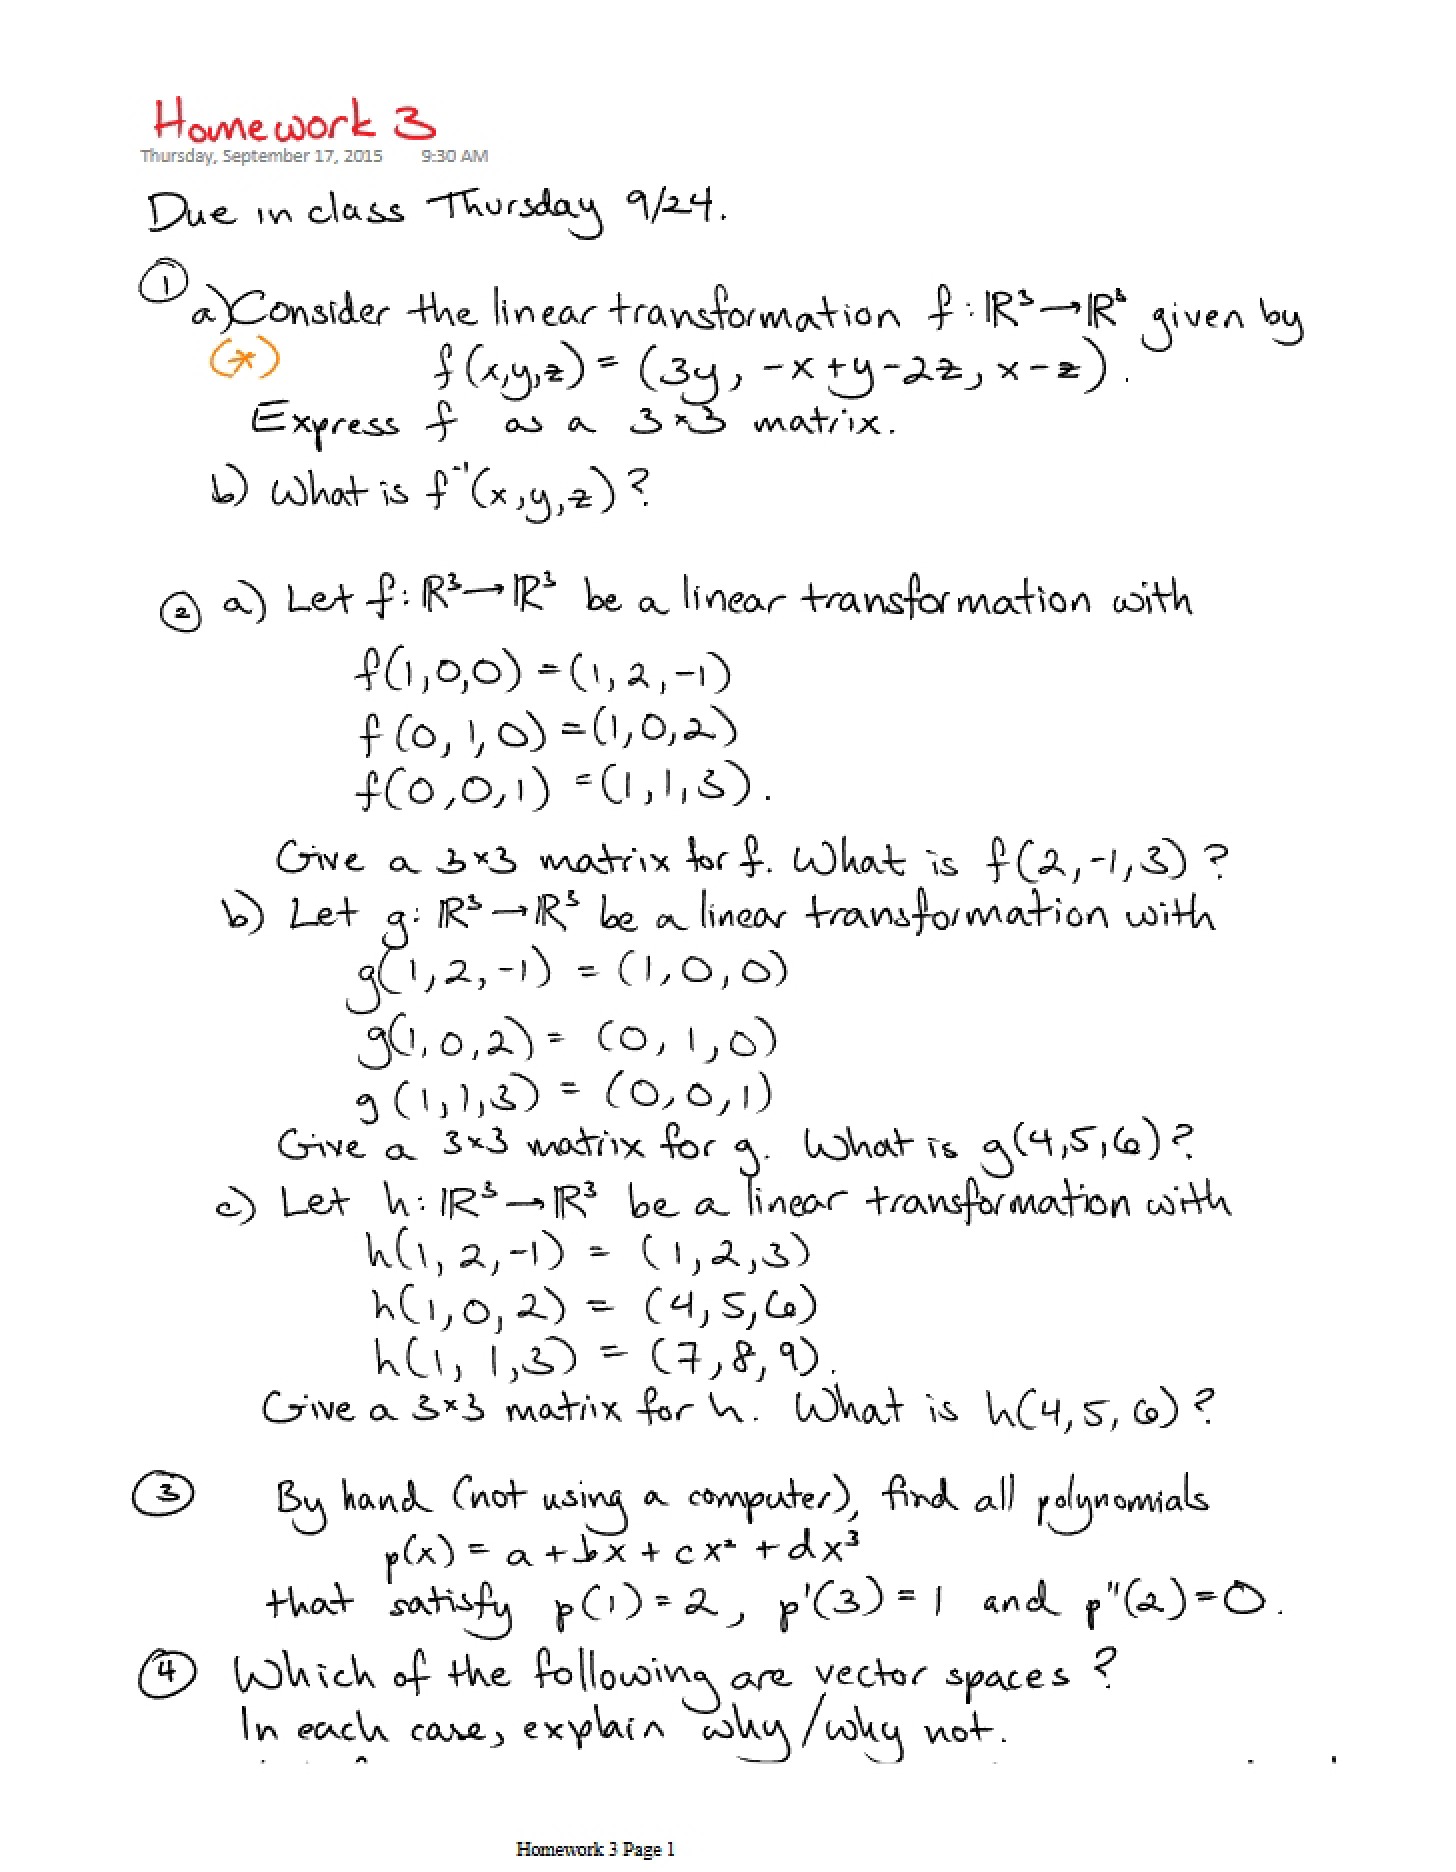 Homework 3
Thursday, September 17, 2015 9:30 AM
Due in class Thursday 9/24.
① a) Consider the linear transformation f: ℝ³→ℝ³ given by
(*) f(x,y,z) = (3y, -x+y-2z, x-z).
Express f as a 3×3 matrix.
b) What is f⁻¹(x,y,z)?
② a) Let f: ℝ³→ℝ³ be a linear transformation with
f(1,0,0) = (1,2,-1)
f(0,1,0) = (1,0,2)
f(0,0,1) = (1,1,3).
Give a 3×3 matrix for f. What is f(2,-1,3)?
b) Let g: ℝ³→ℝ³ be a linear transformation with
g(1,2,-1) = (1,0,0)
g(1,0,2) = (0,1,0)
g(1,1,3) = (0,0,1)
Give a 3×3 matrix for g. What is g(4,5,6)?
c) Let h: ℝ³→ℝ³ be a linear transformation with
h(1,2,-1) = (1,2,3)
h(1,0,2) = (4,5,6)
h(1,1,3) = (7,8,9).
Give a 3×3 matrix for h. What is h(4,5,6)?
③ By hand (not using a computer), find all polynomials
p(x) = a + bx + cx² + dx³
that satisfy p(1)=2, p'(3)=1 and p"(2)=0.
④ Which of the following are vector spaces?
In each case, explain why/why not.
Homework 3 Page 1